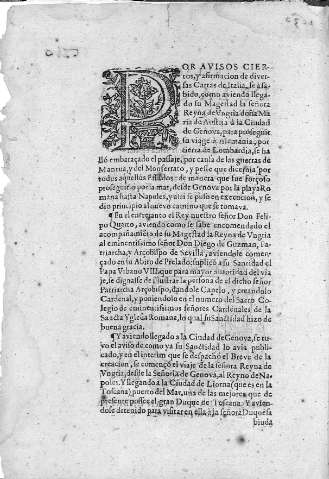 POR AVISOS CIER-
tos, y afirmacion de diver-
sas Cartas de Italia, se à sa-
bido, como aviendo llega-
do su Magestad la señora
Reyna de Vngria doña Ma-
ria de Austria à la Ciudad
de Genova, para proseguir
su viage à Alemania, por
tierra de Lombardia, se ha
lló embaraçado el passaje, por causa de las guerras de
Mantua, y del Monferrato, y peste que discurria por
todos aquellos Estados: de manera que fue forçoso
proseguirlo por la mar, desde Genova por la playa Ro
mana hasta Napoles, y assi se puso en execucion, y se
dio principio al nuevo camino que se tomava.
¶ En el entretanto el Rey nuestro señor Don Felipe
Quarto, aviendo como se sabe encomendado el
acompañamiẽto de su Magestad la Reyna de Vngria
al eminentissimo señor Don Diego de Guzman, Pa-
triarcha, y Arçobispo de Sevilla, aviendole comen-
çado en su Abito de Prelado suplicò a su Santidad el
Papa Vrbano VIII. que para mayor autoridad del via
je, se dignasse de illustrar la persona de el dicho señor
Patriarcha Arçobispo, dandole Capelo, y creandolo
Cardenal, y poniendolo en el numero del Sacro Co-
legio de eminentissimos señores Cardenales de la
Sancta Yglesia Romana, lo qual su Santidad hizo de
buena gracia.
¶ Y aviendo llegado a la Ciudad de Genova, se tu-
vo el aviso de como ya su Sanctidad lo avia publi-
cado, y en el interim que se despachò el Breve de la
creacion, se començò el viaje de la señora Reyna de
Vngria, desde la Señoria de Genova, al Reyno de Na-
poles. Y llegando a la Ciudad de Liorna (que es en la
Toscana) puerto del Mar, una de las mejores que de
presente possee el gran Duque de Toscana. Y avien-
dose detenido para visitar en ella à la señora Duquesa
biuda